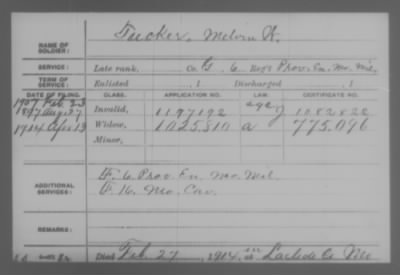 NAME OF SOLDIER: Tucker, Melvin H.
SERVICE: Late rank, Co. G, 6 Reg't Prov. En. Mo. Mil.
TERM OF SERVICE: Enlisted , 1 Discharged , 1
DATE OF FILING. CLASS. APPLICATION NO. LAW. CERTIFICATE NO.
1907 Feb. 23
Aug. 27 Invalid, 1197192 age 1082822
1914 Apr 13 Widow, 1025810 a 775,096
Minor,
ADDITIONAL SERVICES: F. 6 Prov. En. Mo. Mil.
F. 16. Mo. Cav.
REMARKS:
Died Feb. 27, 1914, in Laclede Co Mo